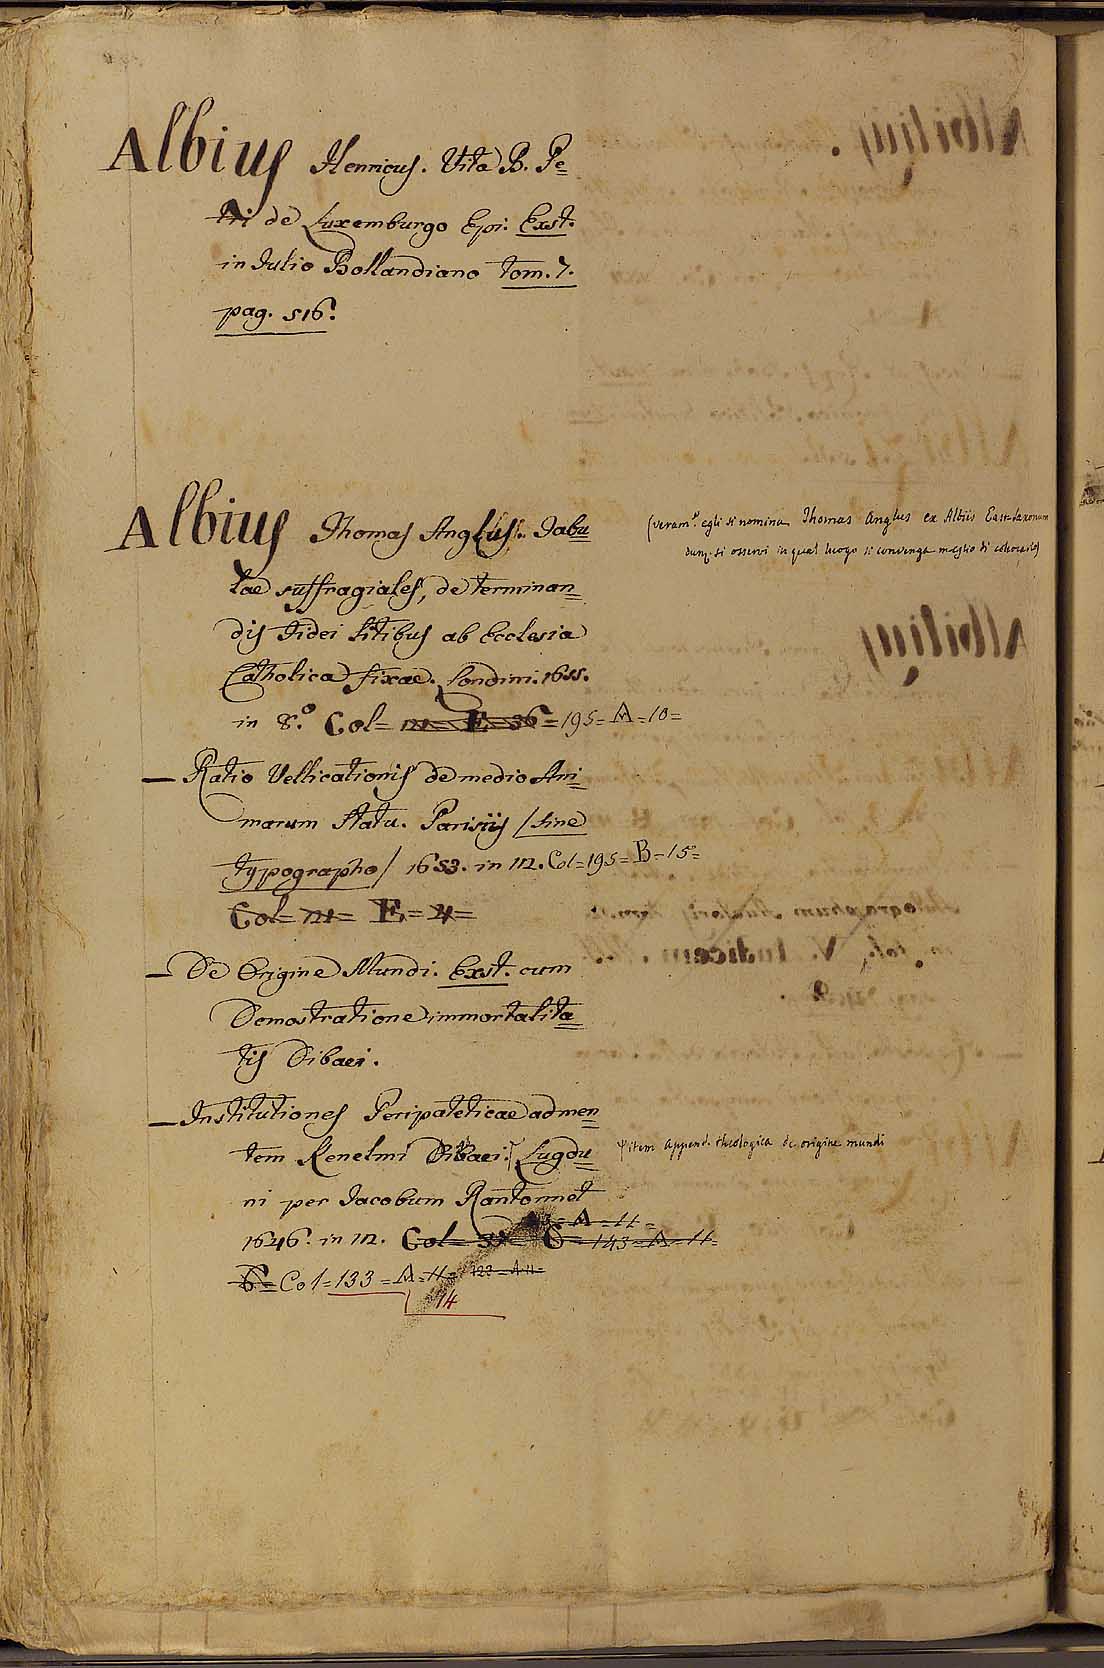 Albius Henricus. Vita B. Pe=
tri de Luxemburgo Epi. Exst.
in Julio Bollandiano tom. 7.
pag. 516.
Albius Thomas Anglus. Tabu
lae suffragiales, de terminan=
dis fidei litibus ab Ecclesia
Catholica fixae. Londini. 1655.
in 8.º Col= 121= E= 36= 195= A=10=
— Ratio Vellicationis de medio Ani=
marum statu. Parisiis / sine
typographo / 1653. in 12. Col=195= B=15=
Col= 121= E= 4=
— De Origine Mundi. Exst. cum
Demostratione immortalita=
tis Dibaei.
— Institutiones Peripateticae ad men=
tem Kenelmi Dibaei. Lugdu=
ni per Jacobum Rantonnet
= A = 11 =
1646. in 12. Col= C= 143= A= 11=
6= Col=133= A=11= 133=A 11=
14
(veram.e egli si nomina Thomas Anglus ex Albiis East-Saxonum
dunq. si osservi in qual luogo si convenga meglio di collocarlo)
item append. theologica de origine mundi